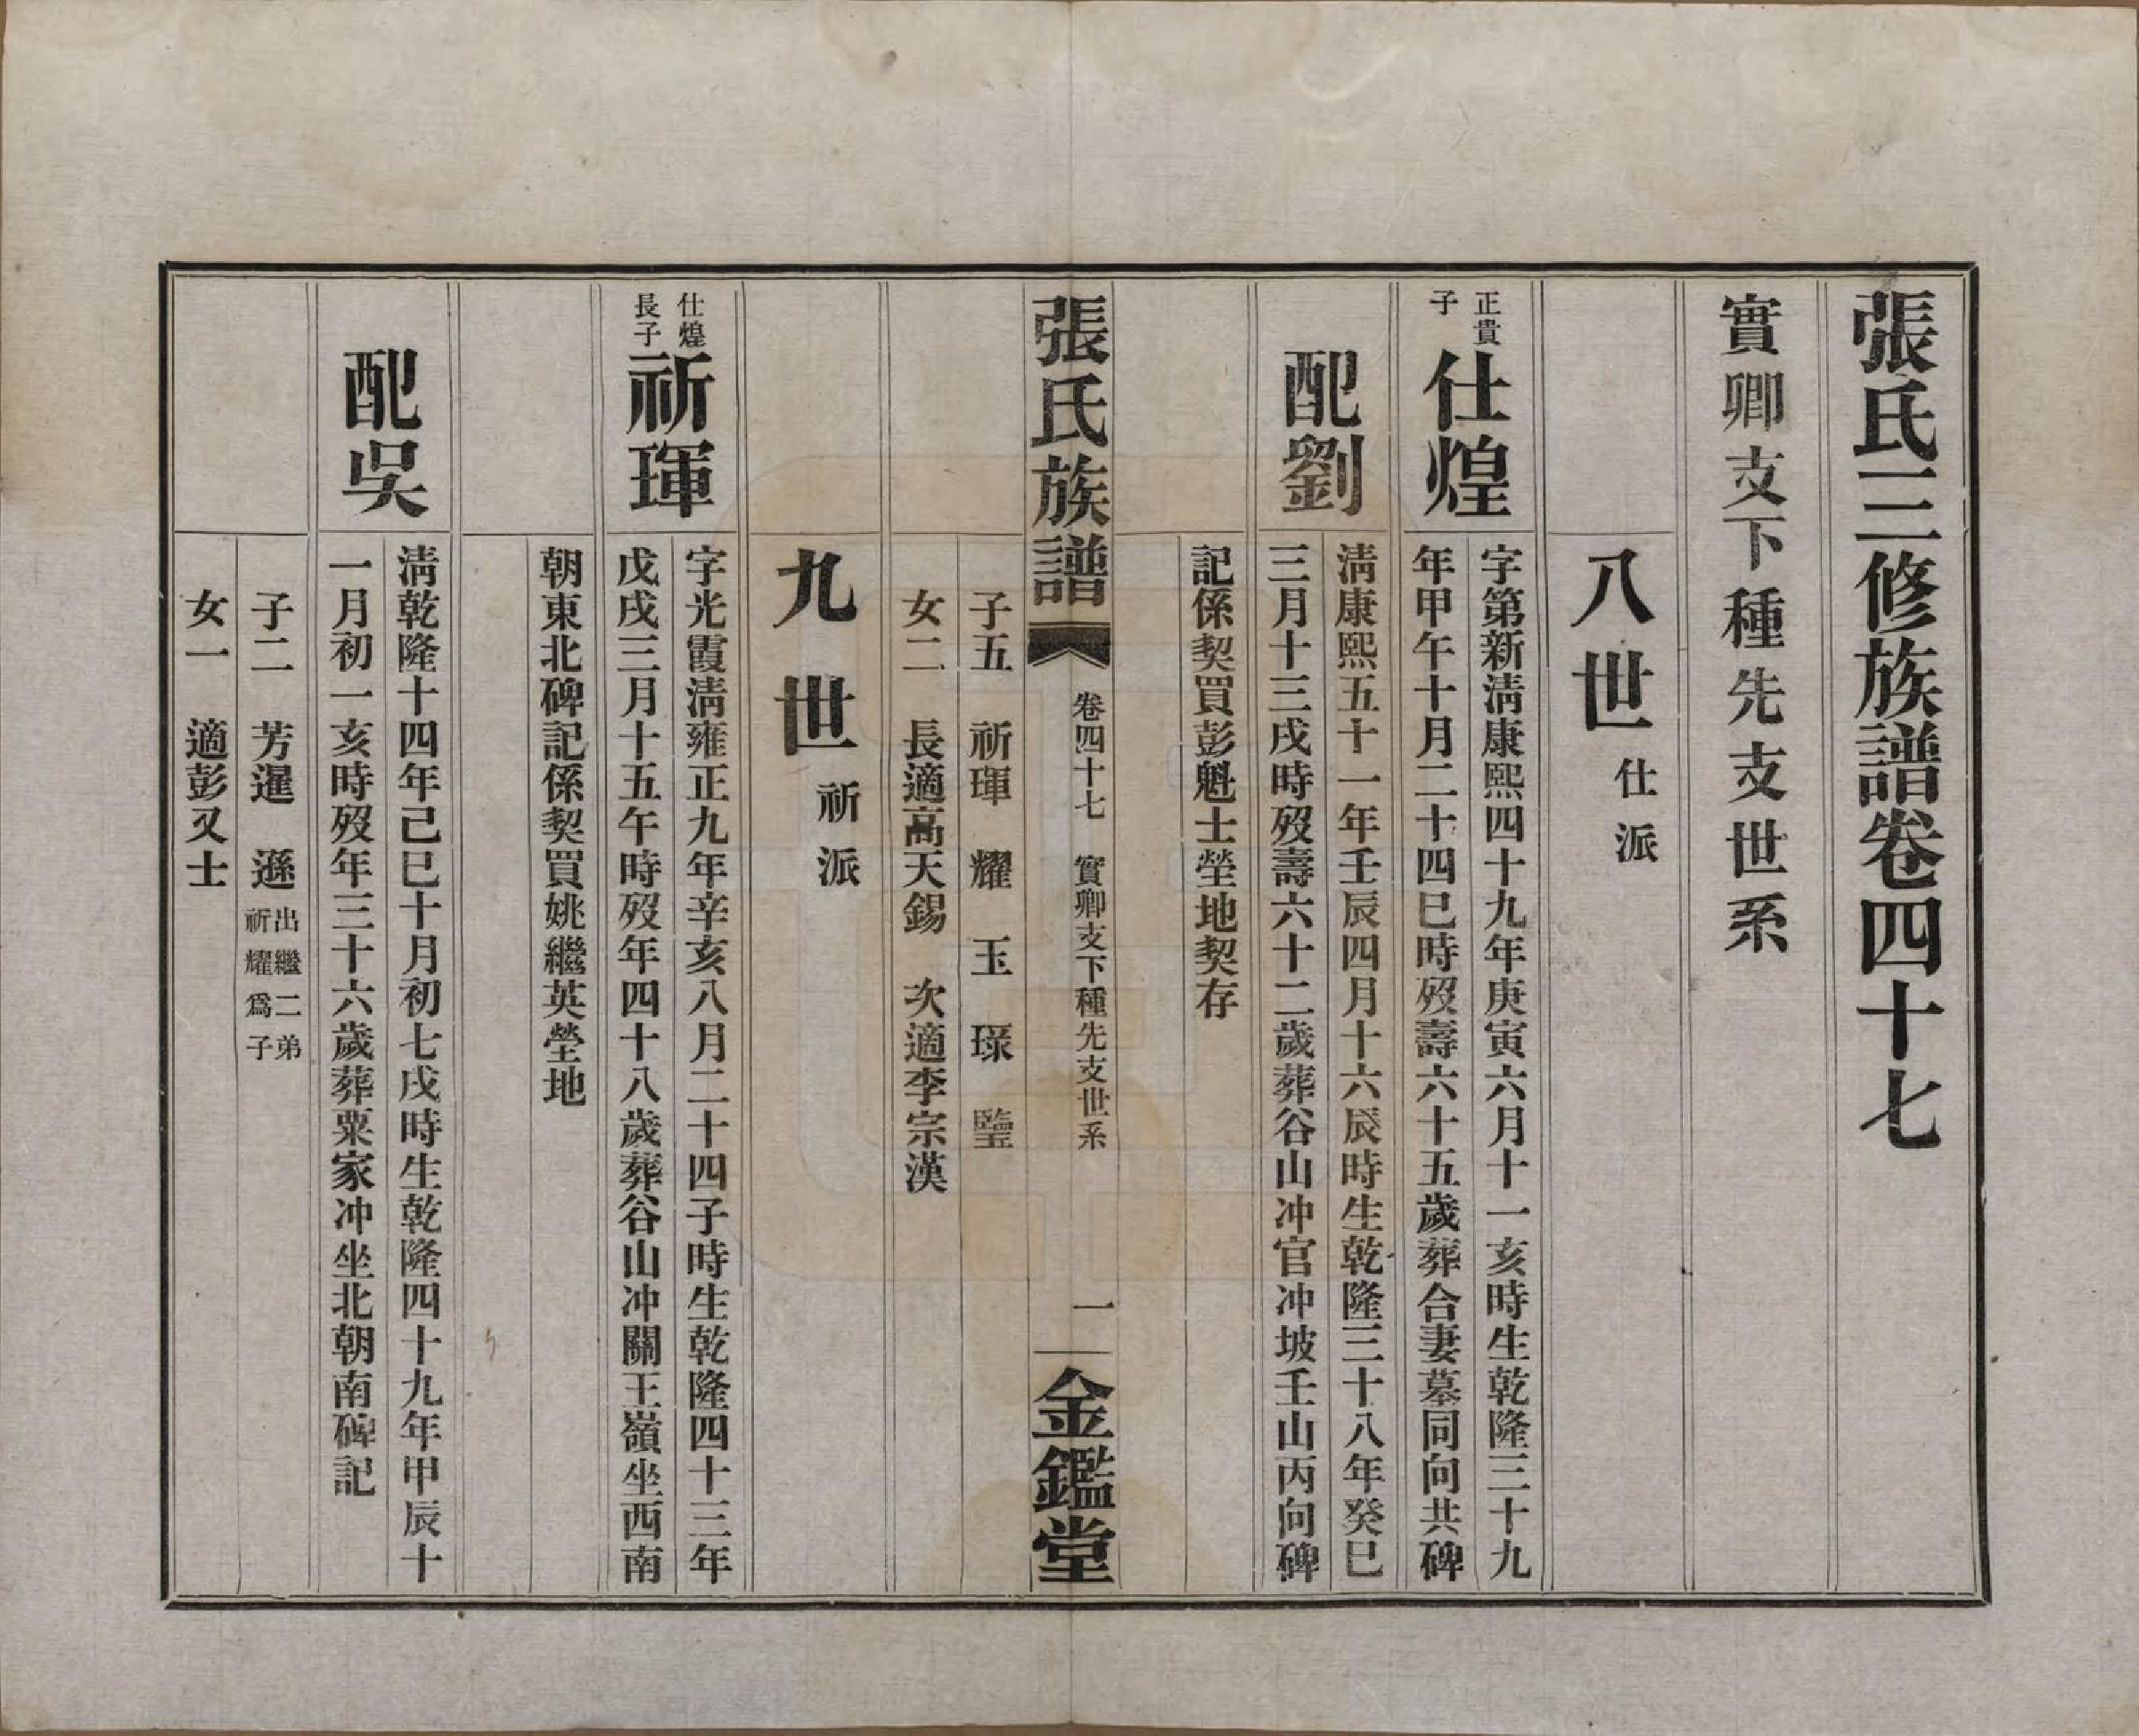 張氏三修族譜卷四十七
實卿支下種先支世系
八世 仕派
正貴子
仕煌
字第新淸康熙四十九年庚寅六月十一亥時生乾隆三十九
年甲午十月二十四巳時歿壽六十五歲葬合妻墓同向共碑
配劉
淸康熙五十一年壬辰四月十六辰時生乾隆三十八年癸巳
三月十三戌時歿壽六十二歲葬谷山冲官冲坡壬山丙向碑
記係契買彭魁士塋地契存
張氏族譜 卷四十七 實卿支下種先支世系 一 金鑑堂
子五 祈琿 耀 玉 琛 鑒
女二 長適高天錫 次適李宗漢
九世 祈派
仕煌長子
祈琿
字光霞淸雍正九年辛亥八月二十四子時生乾隆四十三年
戊戌三月十五午時歿年四十八歲葬谷山冲關王嶺坐西南
朝東北碑記係契買姚繼英塋地
配吳
淸乾隆十四年己巳十月初七戌時生乾隆四十九年甲辰十
一月初一亥時歿年三十六歲葬粟家冲坐北朝南碑記
子二 芳暹 遜 出繼二弟祈耀爲子
女一 適彭又士